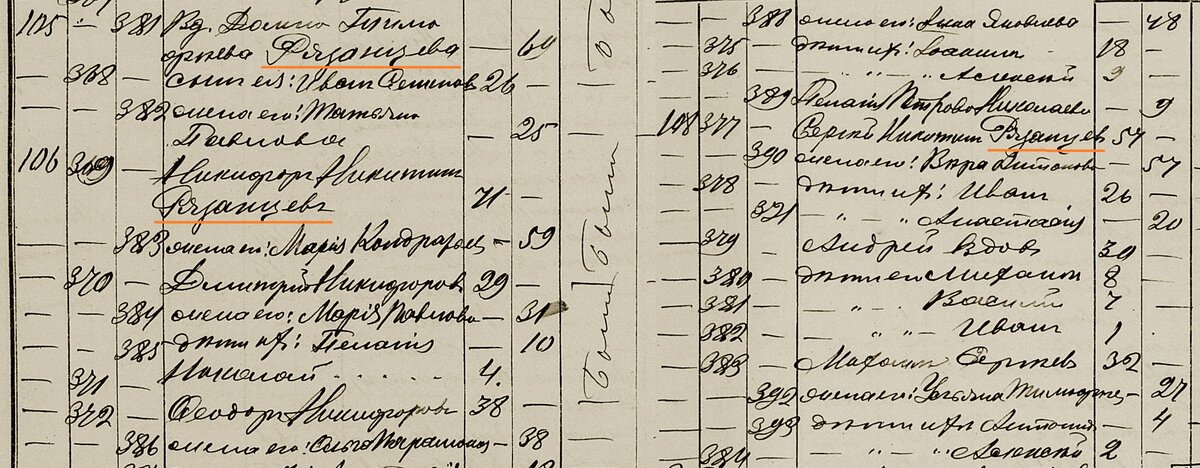 105 — 381 Вд. Домна Тимо
ѳеева Рязанцева — 69
— 368 — сынъ ея: Иванъ Семенов 26 —
— — 382 жена его: Татьяна
Павловна — 25
106 369 — Никифоръ Никитинъ
Рязанцевъ 71 —
— — 383 жена его: Марія Кондрат — 59
— 370 — Дмитрій Никифоровъ 29 —
— — 384 жена его: Марія Павлова — 31
— — 385 дѣти ихъ: Пелагія — 10
— 371 — Николай . . . . . 4.
— 372 — Ѳеодоръ Никифоровъ 38
— — 386 жена его: — 38
были были
— — 388 жена его: Анна Яковлева — 48
— 375 — дѣти ихъ: Іоаннъ 18 —
— 376 — " " Алексѣй 9
— — 389 Пелагія Петрова Николаева — 9
108 377 — Сергѣй Никитинъ Рязанцев 57 —
— — 390 жена его: Вѣра Антонова — 57
— 378 — дѣти ихъ: Иванъ 26 —
— — 391 " " Анастасія — 20
— 379 — Андрей Вдовъ 30 —
— 380 — дѣти его Михаилъ 8
— 381 — " " Василій 7
— 382 — " " Иванъ 1
— 383 — Сергѣев 32 —
— — 392 жена его: Ульяна — 27
— — 393 дѣти ихъ — 4
— 384 — " " Алексѣй 2